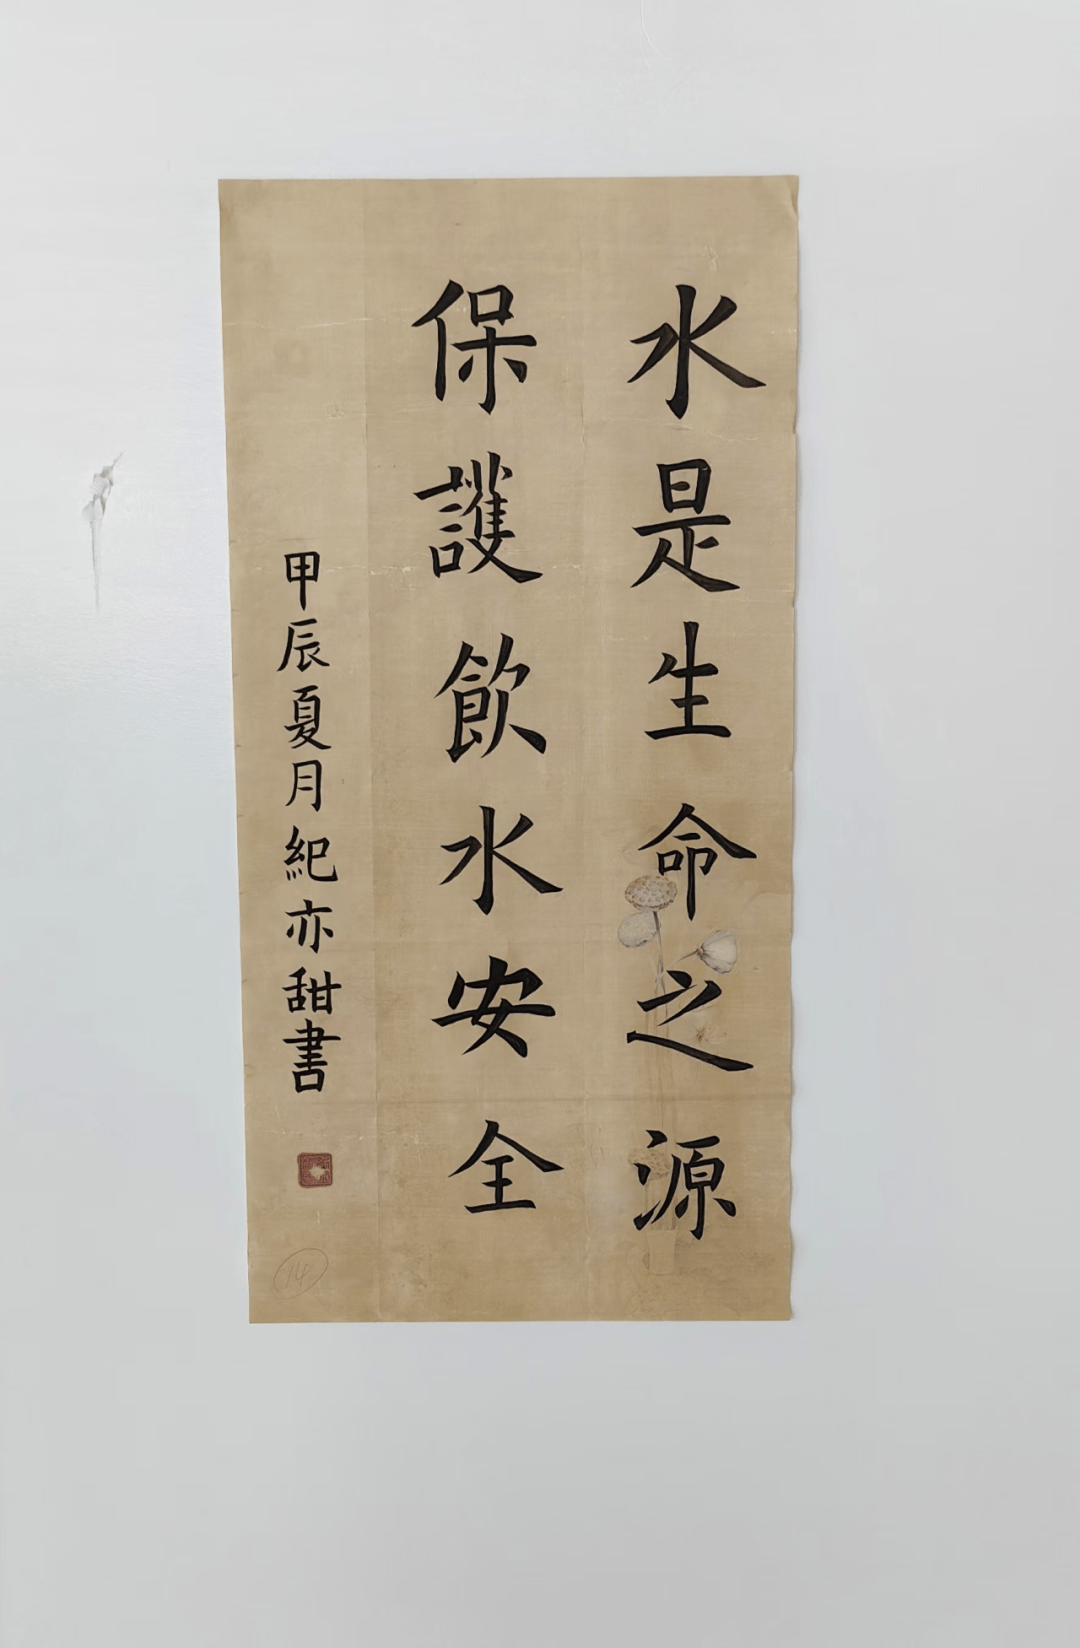 水是生命之源
保護飲水安全
甲辰夏月紀亦甜書
14